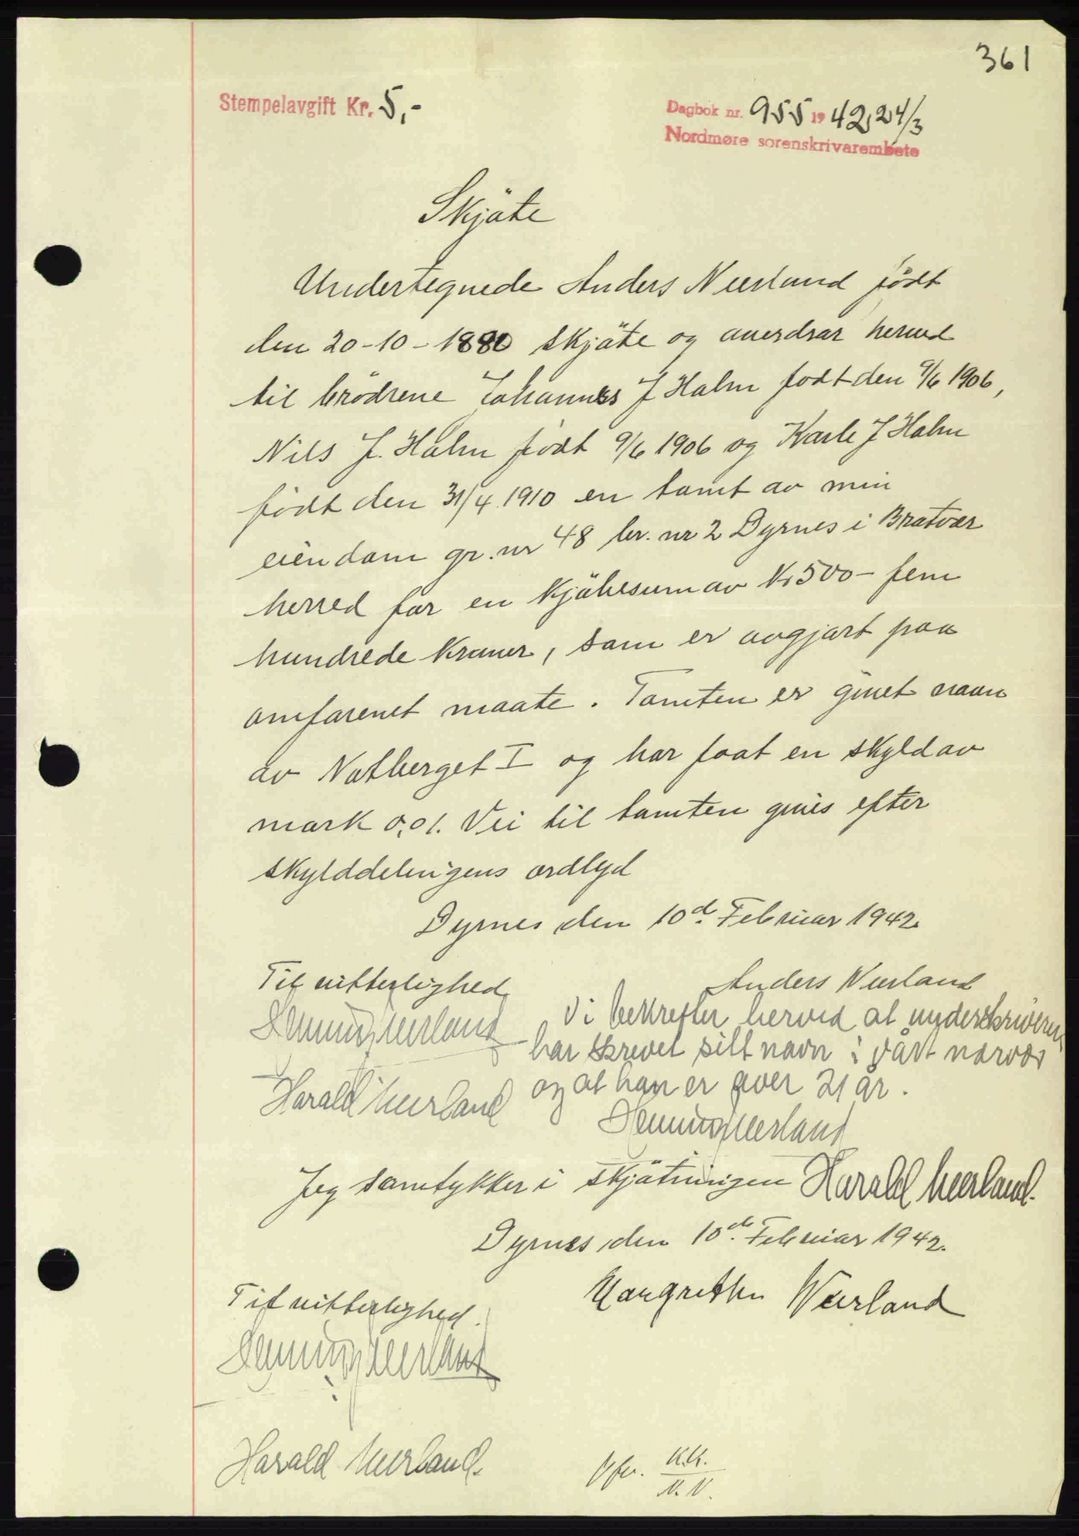 361
Stempelavgift Kr. 5,-
Dagbok nr. 955 1942, 24/3
Nordmøre sorenskrivarembete
Skjöte
Undertegnede Anders Neerland født
den 20-10-1880 skjöte og overdrar herved
til brödrene Johannes J Holm født den 9/6 1906,
Nils J. Holm født 9/6 1906 og Karle J Holm
født den 31/4 1910 en tomt av min
eiendom gr. nr 48 br. nr 2 Dyrnes i Bratvær
herred for en kjöbesum av Kr 500- fem
hundrede kroner, som er avgjort paa
omforenet maate. Tomten er givet navn
av Notberget I og har faat en skyld av
mark 0,01. Vei til tomten givis efter
skylddelingens ordlyd
Dyrnes den 10d. Februar 1942.
Til vitterlighed Anders Neerland
Henning Neerland Vi bekrefter herved at underskriveren
har skrevet sitt navn i vårt nærvær
Harald Neerland og at han er over 21 år.
Henning Neerland
Jeg samtykker i skjötningen Harald Neerland.
Dyrnes den 10de. Februar 1942.
Til vitterlighed. Margrethe Neerland
Henning Neerland
Harald Neerland.
N. N.